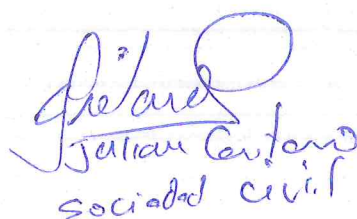 Julian Centeno
sociedad civil